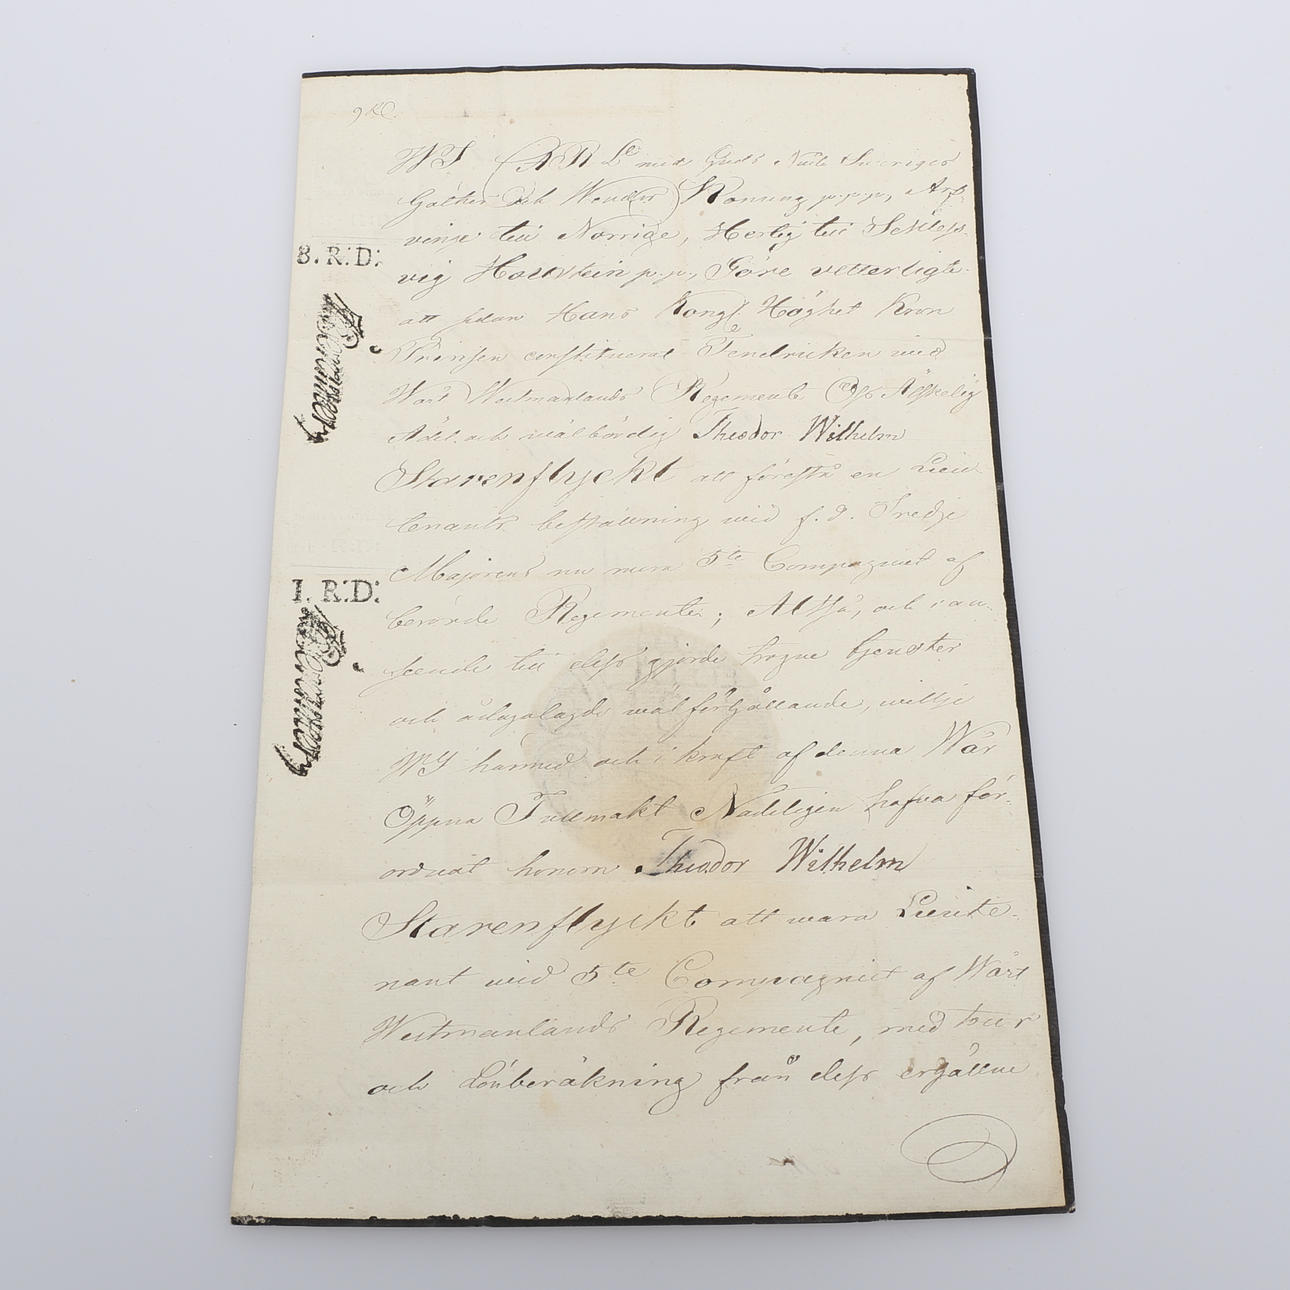 9 RD.
WJ CARL med Guds Nåde Sweriges
Göthes och Wendes Konung p.p.p., Arf-
vinge till Norrige, Hertig till Schless-
vig Hollstein p.p., Göre vetterligt
att sedan Hans Kongl. Höghet Kron
Prinsen constituerat Fendricken wid
Wårt Westmanlands Regemente Oss Älskelig
Ädel och wälbördig Theodor Wilhelm
Starenflycht att förestå en Lieu-
tenants beställning wid f.d. Tredje
Majorens nu mera 5te Compagniet af
berörde Regemente; Altså, och i an-
seende till dess gjorde trogne tjenster
och ådagalagde wälförhållande, wilje
WJ härmed och i kraft af denna Wår
Öppna Fullmakt Nådeligen hafva för-
ordnat honom Theodor Wilhelm
Starenflykt att wara Lieute-
nant wid 5te Compagniet af Wårt
Westmanlands Regemente, med tur
och Lönberäkning från dess erhållne
8. R:D:
1. R:D: